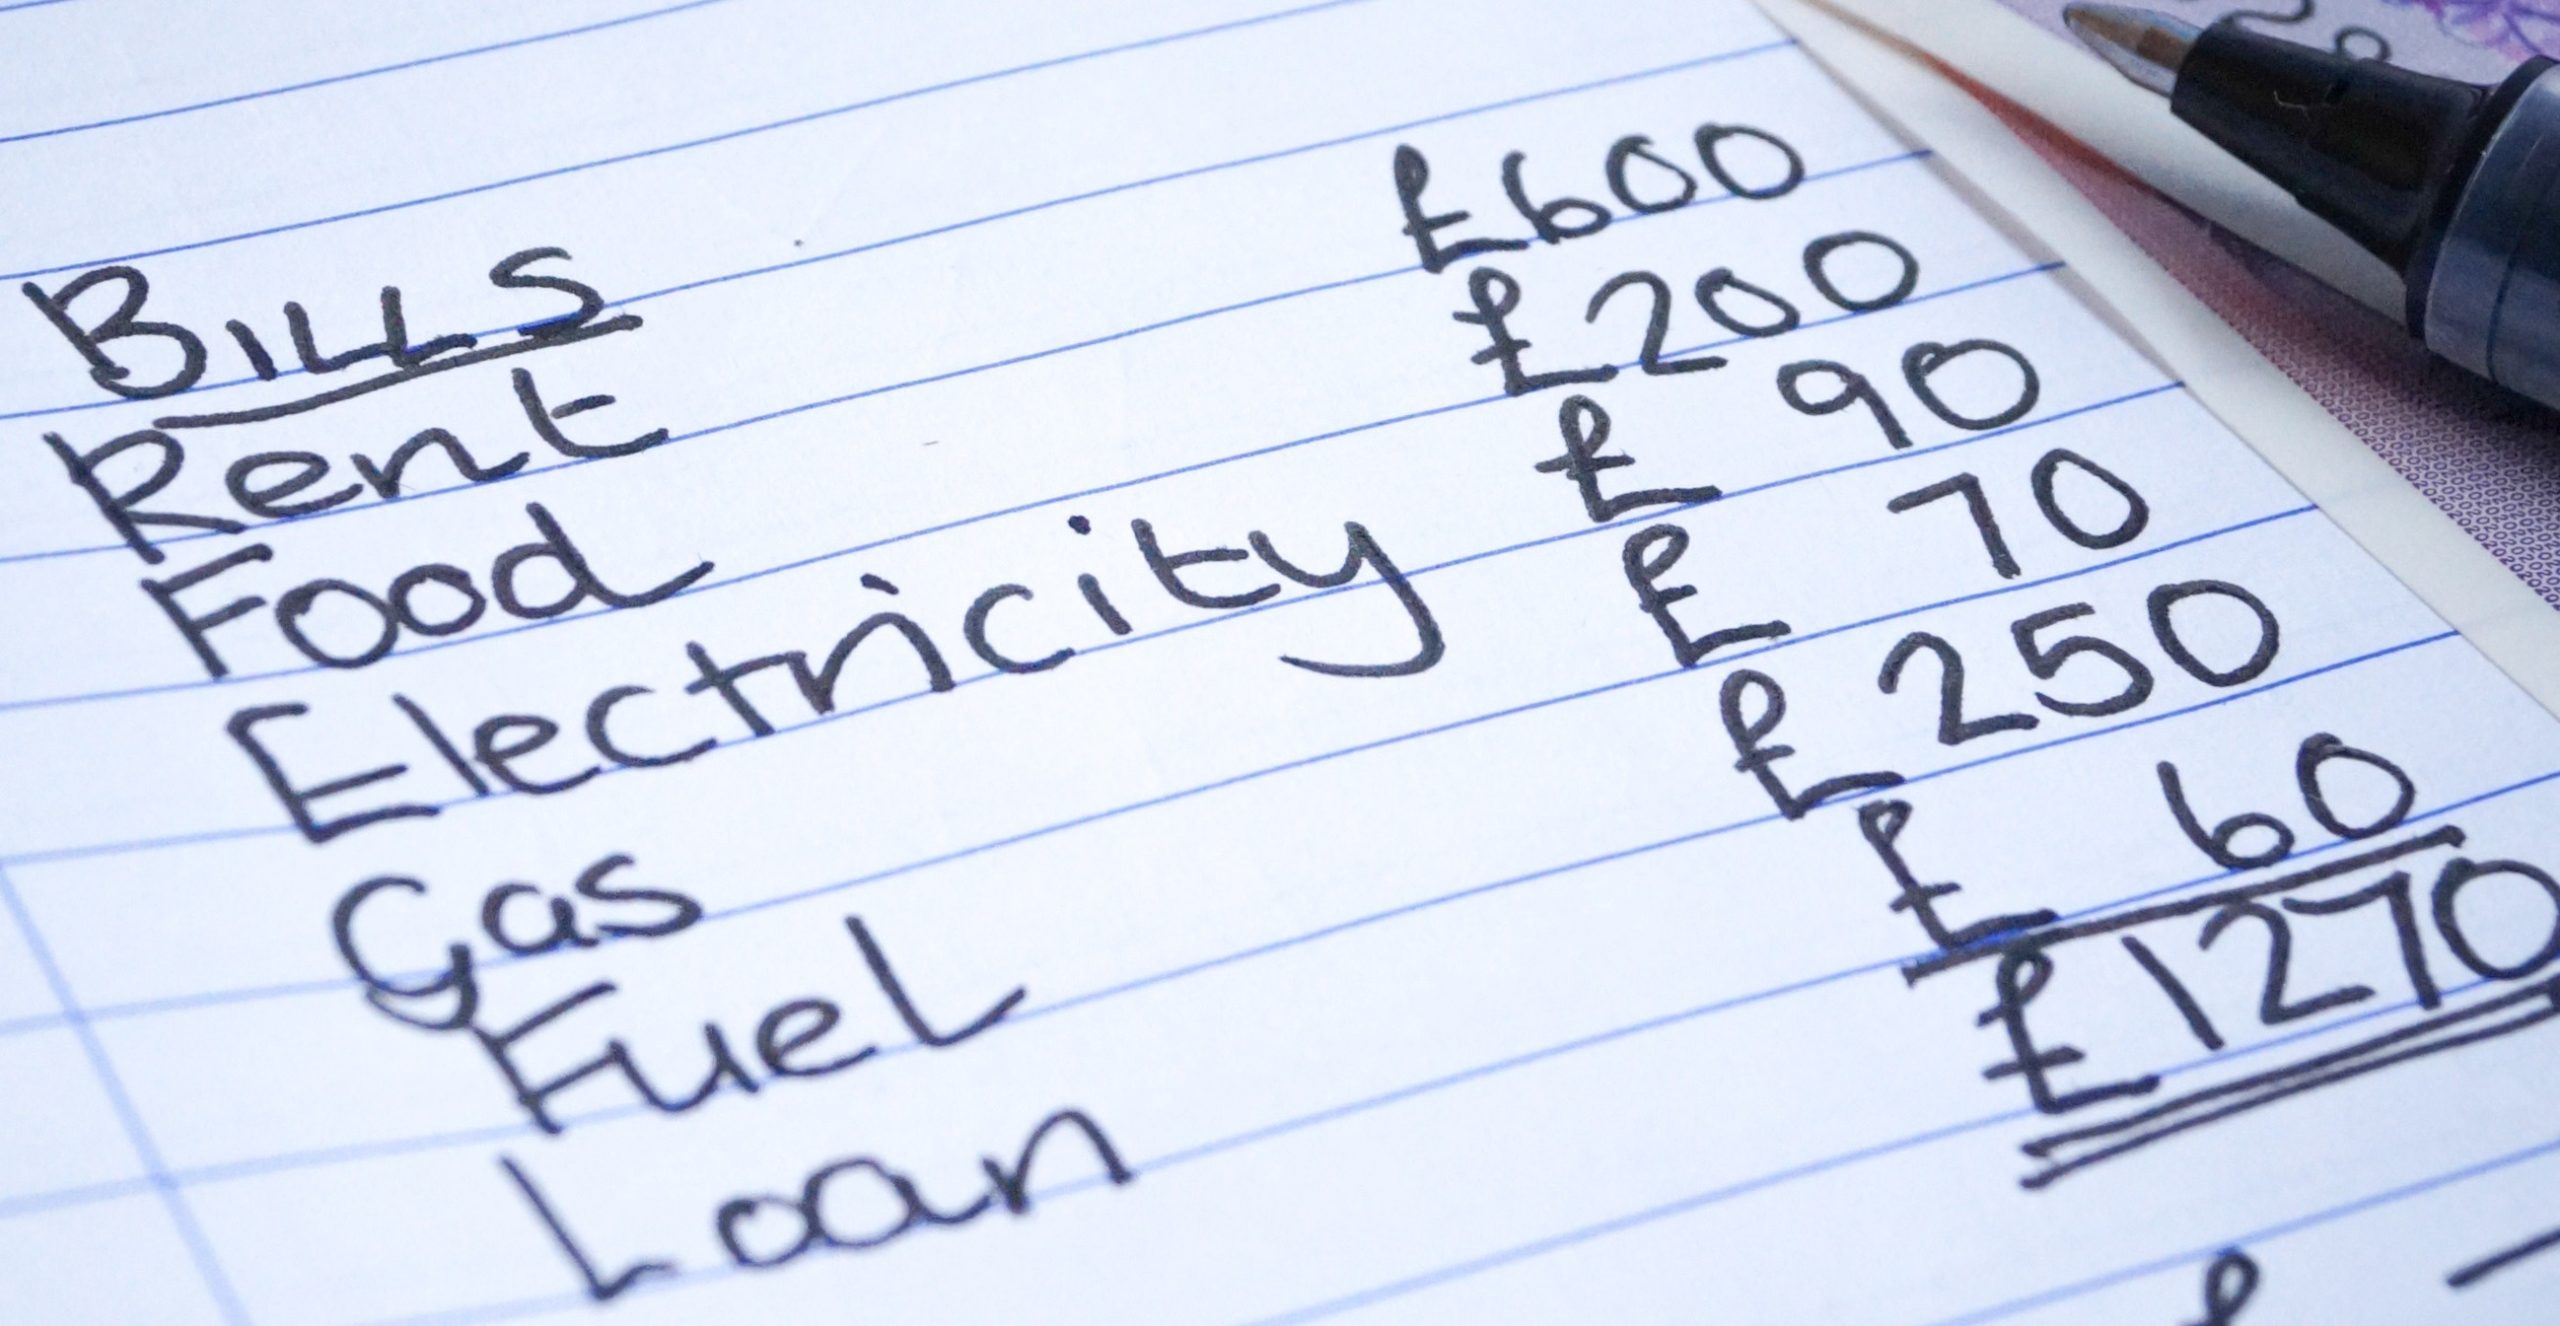 BILLS
Rent £600
Food £200
Electricity £ 90
Gas £ 70
Fuel £ 250
Loan £ 60
£1270